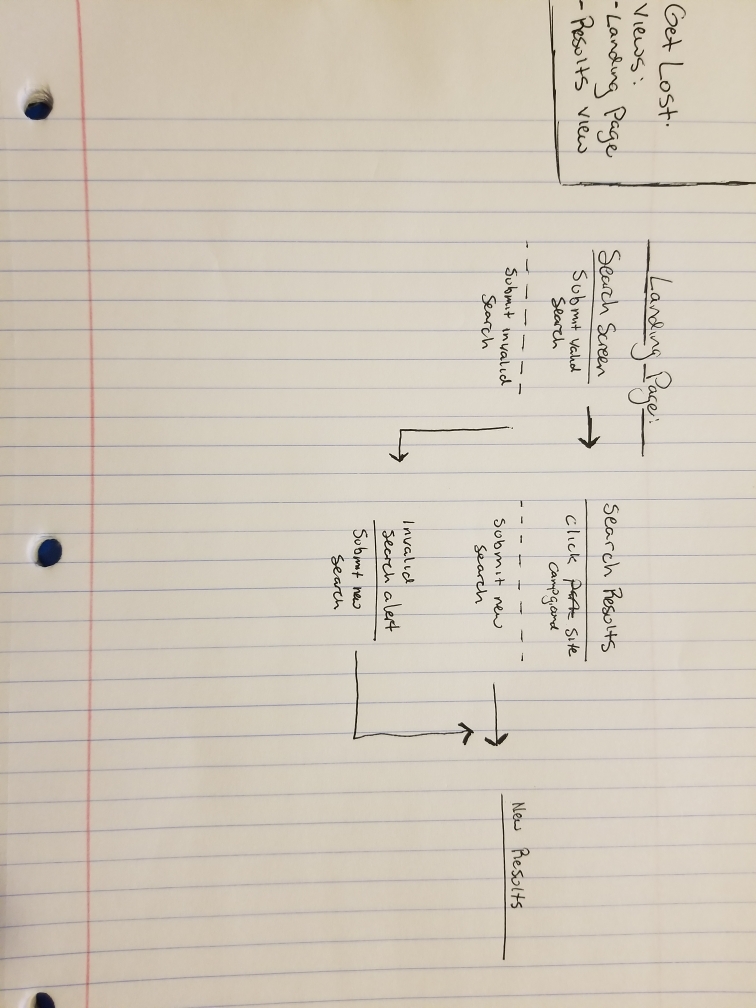 Get Lost.
Views:
- Landing Page
- Results view
Landing Page:
Search Screen
Submit valid
Search
Submit invalid
Search
Search Results
click site
Campground
Submit new
Search
Invalid
Search alert
Submit new
Search
New Results